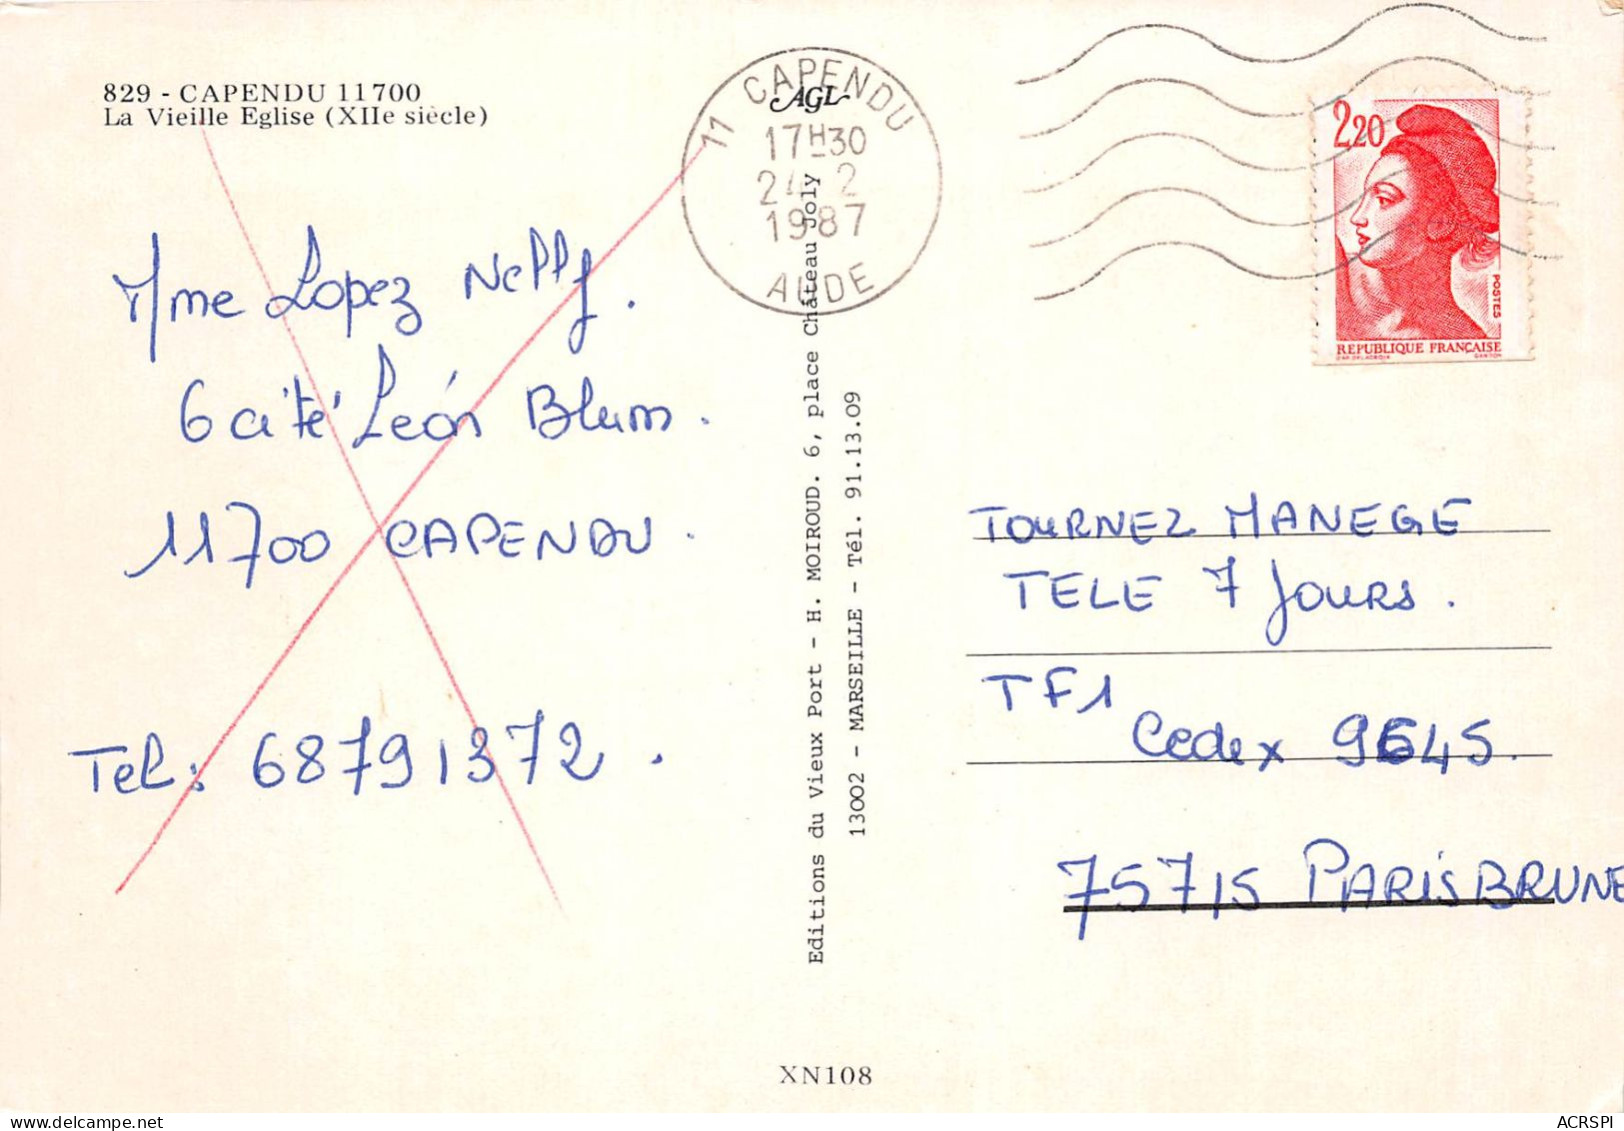 829 - CAPENDU 11700
La Vieille Eglise (XIIe siècle)
Mme Lopez Nelly.
6 cité Léon Blum.
11700 CAPENDU.
Tel: 68791372.
11 CAPENDU
AGL
17H30
24 2
1987
AUDE
Editions du Vieux Port - H. MOIROUD. 6, place Château Joly
13002 - MARSEILLE - Tél. 91.13.09
2,20
POSTES
REPUBLIQUE FRANÇAISE
TOURNEZ MANEGE
TELE 7 Jours.
TF1
Cedex 9645.
75715 PARIS BRUNE
XN108
ACRSPI